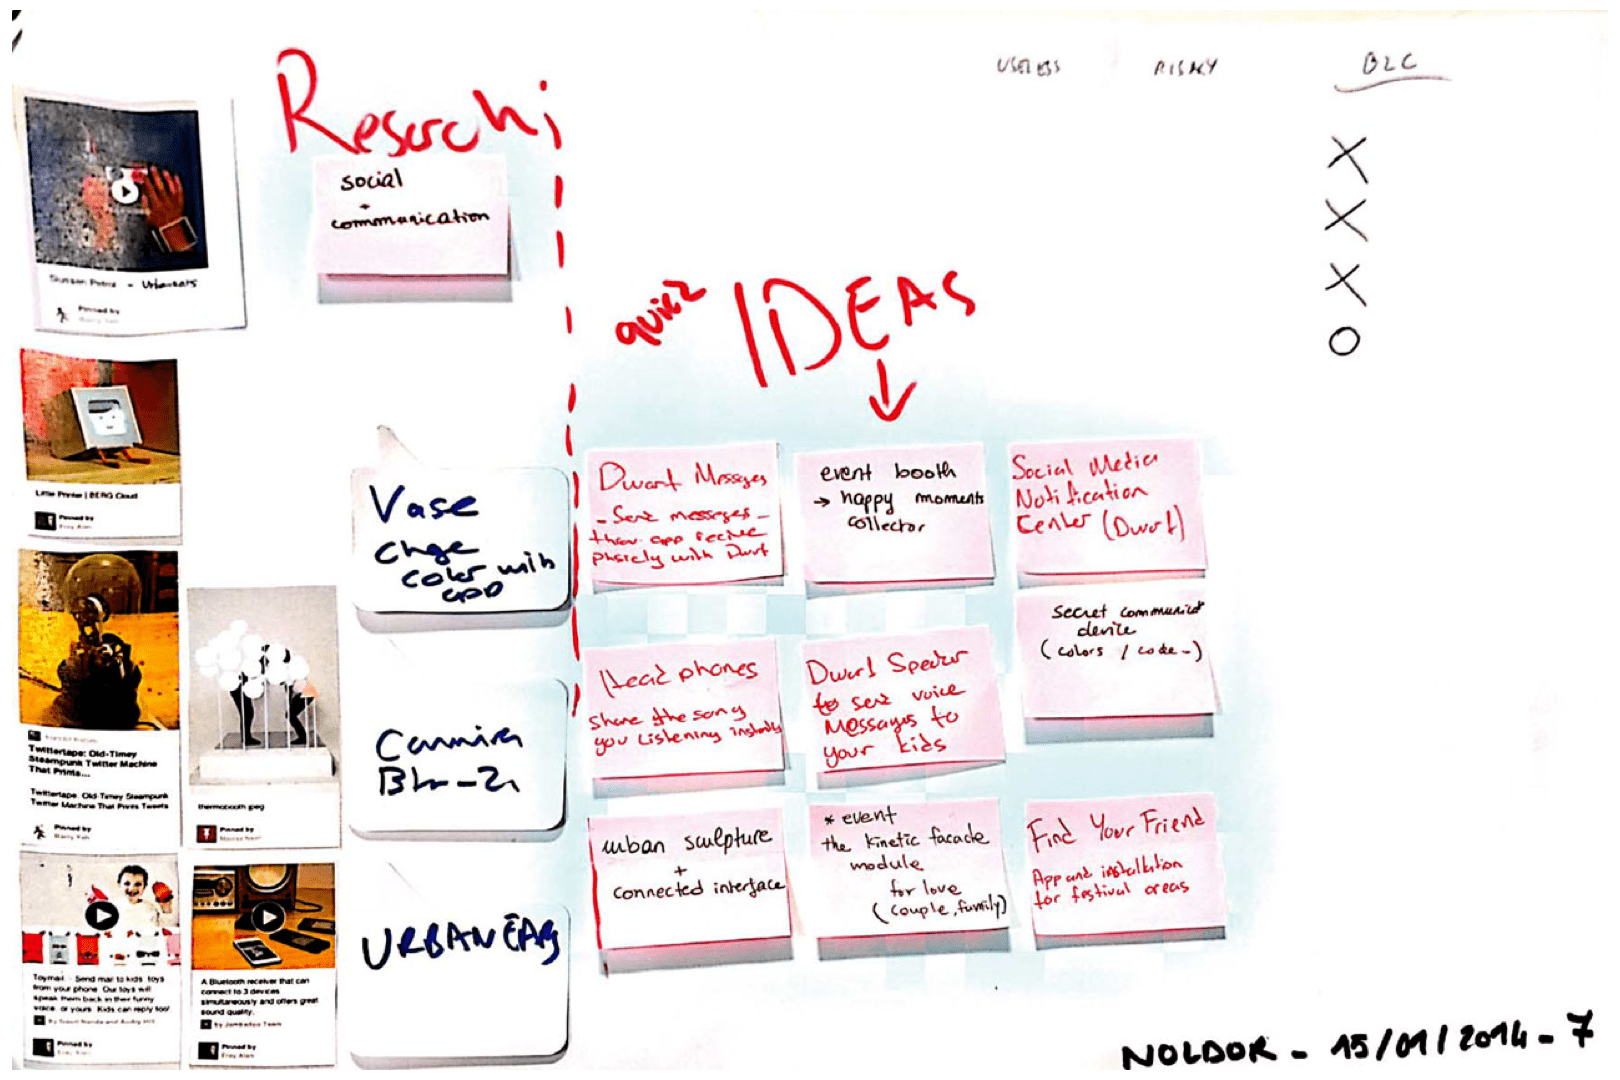 USELESS
RISKY
B2C
X
X
X
O
social
+
communication
Pinned by
Little Printer | BERG Cloud
Pinned by
Eray Alan
Twittertape: Old-Timey
Steampunk Twitter Machine
That Prints...
Twittertape: Old-Timey Steampunk
Twitter Machine That Prints Tweets
Pinned by
thermobooth jpeg
Pinned by
Toymail - Send mail to kids' toys
from your phone. Our toys will
speak them back in their funny
voice, or yours. Kids can reply too!
Pinned by
Eray Alan
A Bluetooth receiver that can
connect to 3 devices
simultaneously and offers great
sound quality.
by Jambadoo Team
Pinned by
Eray Alan
Vase
Chge
color with
app
URBANEARS
IDEAS
Dwarf Messages
event booth
→ happy moments
collector
Social Media
Notification
Center (Dwarf)
Head phones
Share the song
you Listening instantly
Dwarf Speaker
to send voice
Messages to
your kids
secret communicat
device
(colors / code -)
urban sculpture
+
connected interface
* event
the kinetic facade
module
for love
(couple, family)
Find Your Friend
App and installation
for festival areas
NOLDOR - 15/01/2014 - 7